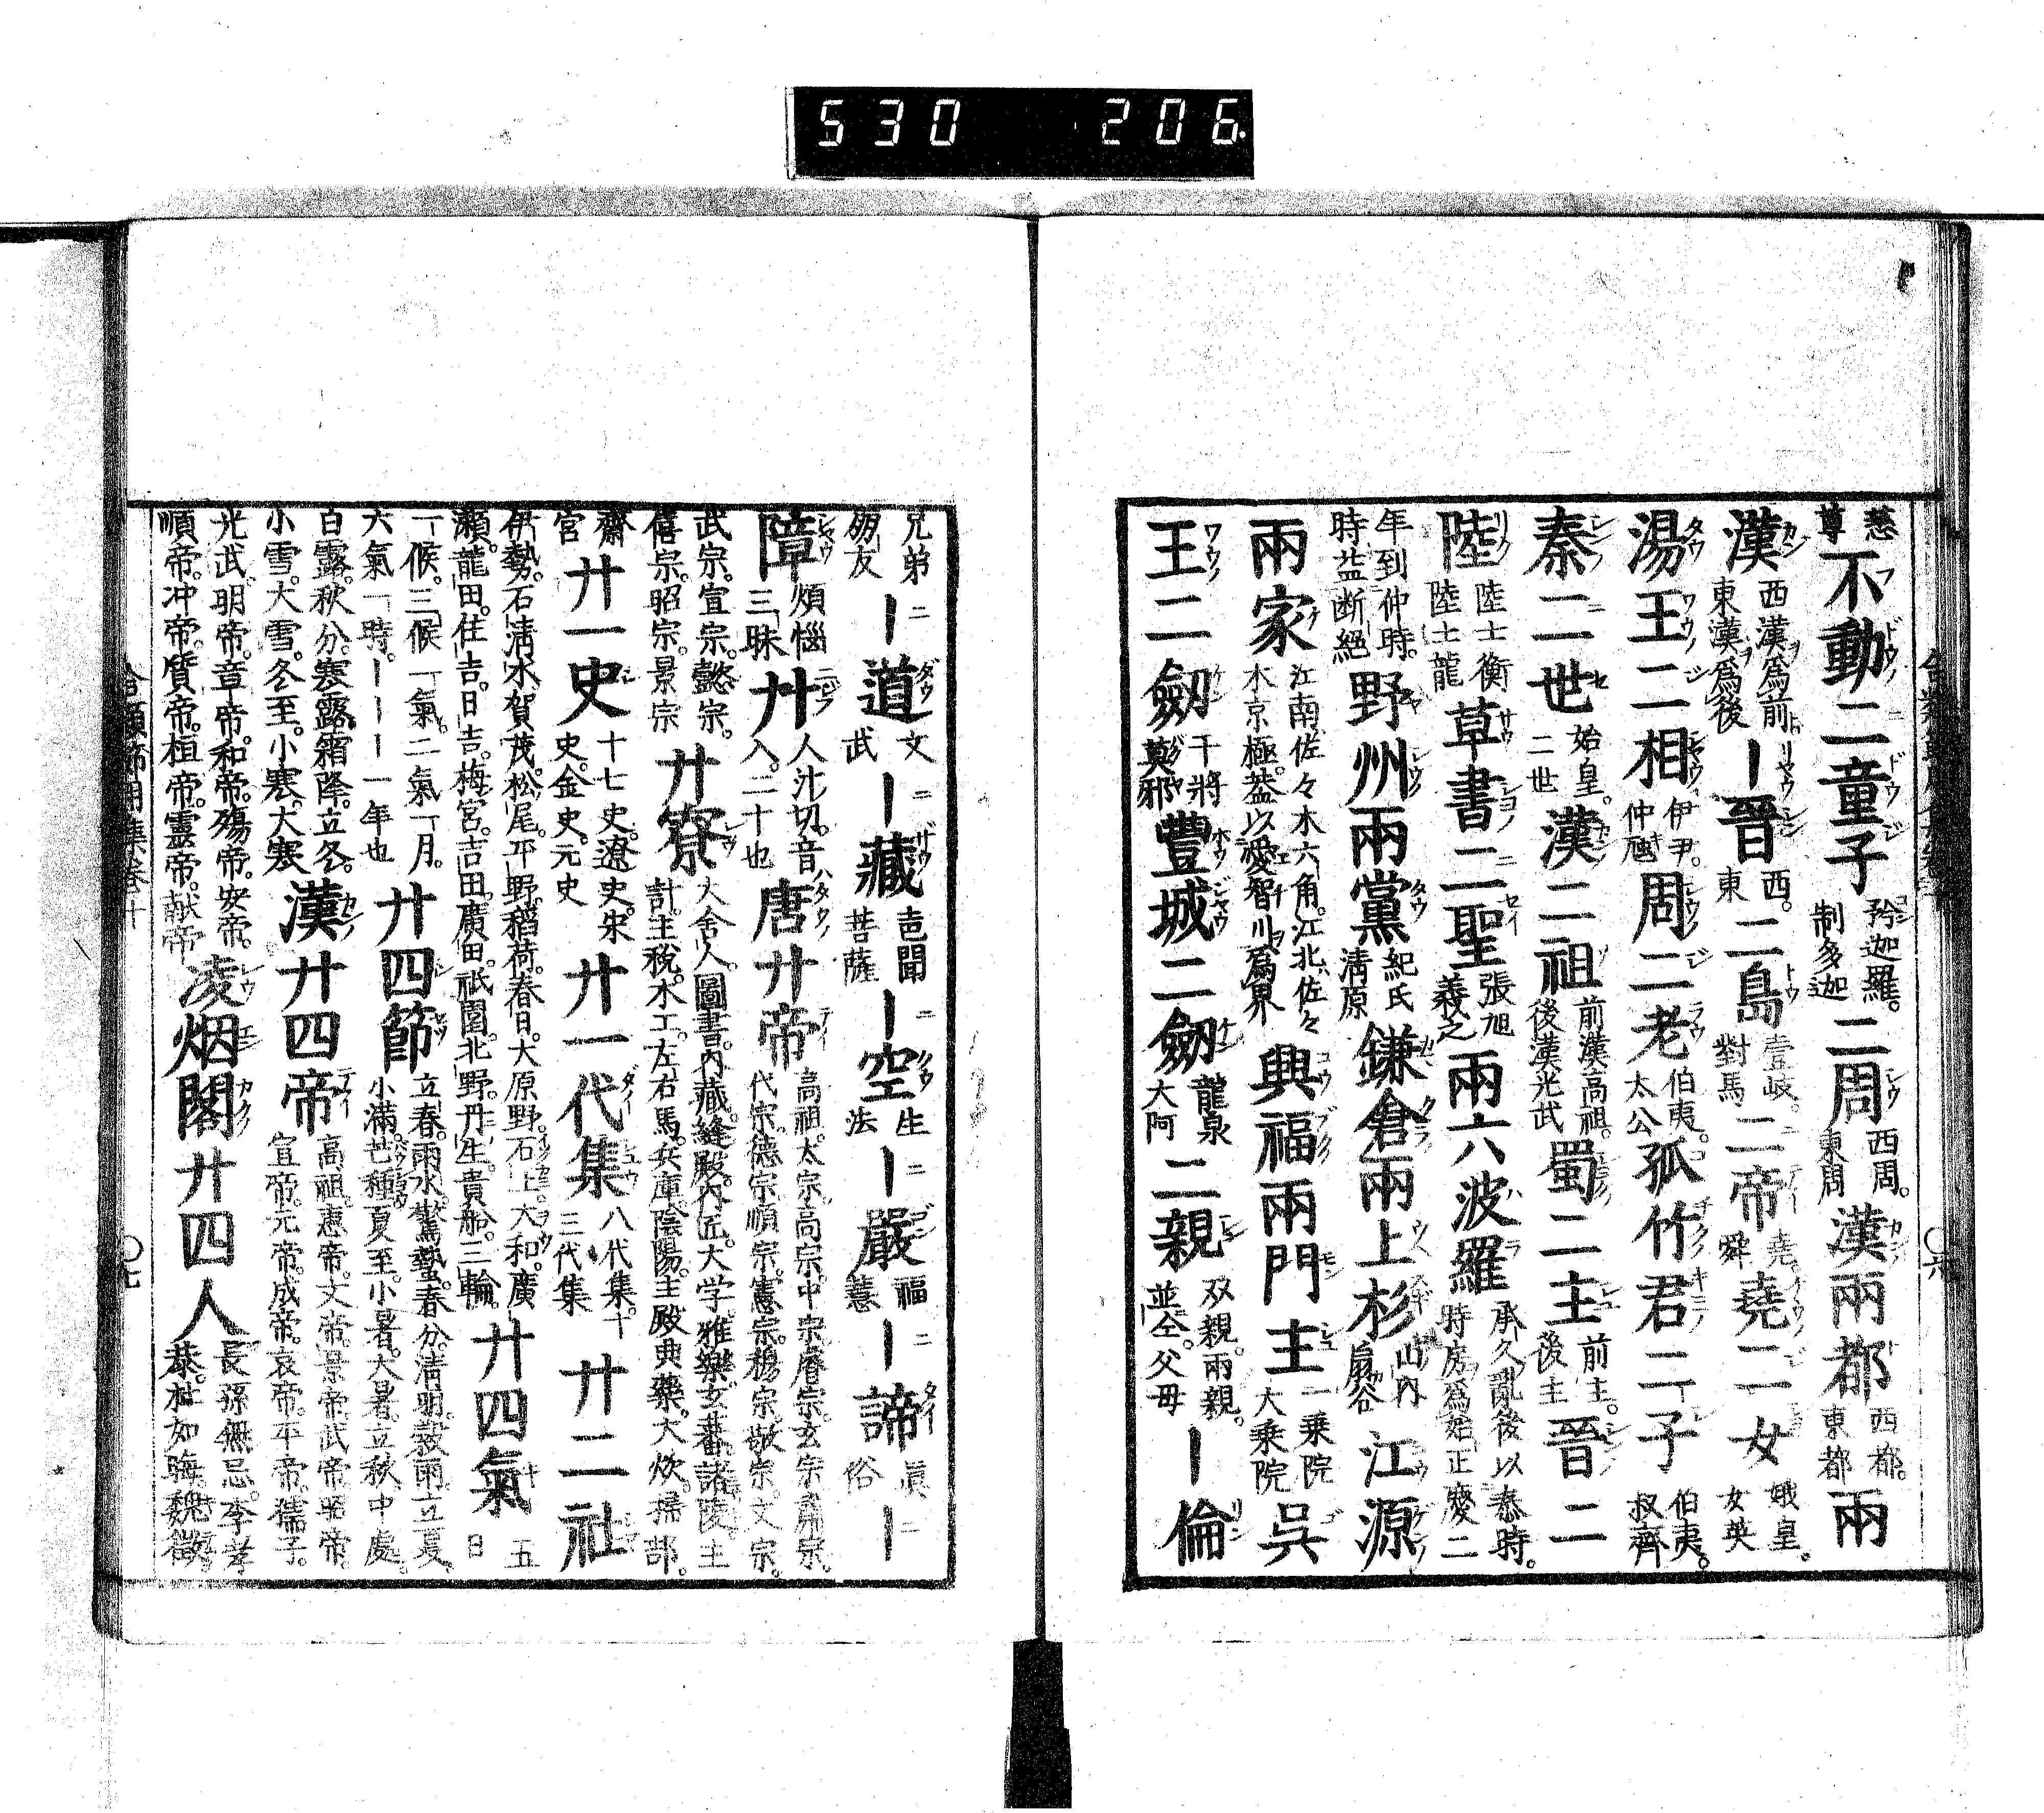 530 206
慈尊 不動二童子 矜迦羅。制多迦 二周 西周。東周 漢兩都 西都。東都 兩
漢 西漢爲前。東漢爲後 ー晉 西。東 二島 壹岐。對馬 二帝 堯。舜 堯二女 娥皇。女英
湯王二相 伊尹。仲虺 周二老 伯夷。太公 孤竹君二子 伯夷。叔齊
秦二世 始皇。二世 漢二祖 前漢高祖。後漢光武 蜀二主 前主。後主 晉二
陸 陸士衡 陸士龍 草書二聖 張旭 羲之 兩六波羅 承久乱後以泰時。時房爲始正慶二
年到仲時。時益断絕 野州兩黨 紀氏 淸原 鎌倉兩上杉 山内 扇谷 江源
兩家 江南佐々木六角。江北佐々木京極。葢以愛智川爲界 興福兩門主 一乗院 大乗院 呉
王二劔 干將 莫邪 豐城二劔 龍泉 大阿 二親 双親。兩親。並仝。父母 ー倫
兄弟 朋友 ー道 文 武 ー藏 声聞 菩薩 ー空 生 法 ー嚴 福 慧 ー諦 眞 俗 ー
障 煩惱 三昧 廾 人汁切。音入。二十也 唐廾帝 高祖。太宗。高宗。中宗。睿宗。玄宗。肅宗。代宗。德宗。順宗。憲宗。穆宗。敬宗。文宗。
武宗。宣宗。懿宗。僖宗。昭宗。景宗 廾寮 大舍人。圖書。内藏。縫殿。内匠。大学。雅樂。玄蕃。諸陵。主計。主稅。木工。左右馬。兵庫。陰陽。主殿。典藥。大炊。掃部。
齋宮 廾一史 十七史。遼史。宋史。金史。元史 廾一代集 八代集。十三代集 廾二社
伊勢。石淸水。賀茂。松尾。平野。稻荷。春日。大原野。石上。大和。廣瀬。龍田。住吉。日吉。梅宮。吉田。廣田。祇園。北野。丹生。貴船。三輪。 廾四氣 五日
一候。三候一氣。二氣一月。六氣一時。ーーー一年也 廾四節 立春。雨水。驚蟄。春分。淸明。穀雨。立夏。小滿。芒種。夏至。小暑。大暑。立秋。中處。
白露。秋分。寒露。霜降。立冬。小雪。大雪。冬至。小寒。大寒 漢廾四帝 高祖。惠帝。文帝。景帝。武帝。昭帝。宣帝。元帝。成帝。哀帝。平帝。孺子。
光武。明帝。章帝。和帝。殤帝。安帝。順帝。冲帝。質帝。桓帝。靈帝。献帝 凌烟閣廾四人 長孫無忌。李孝恭。杜如晦。魏徵